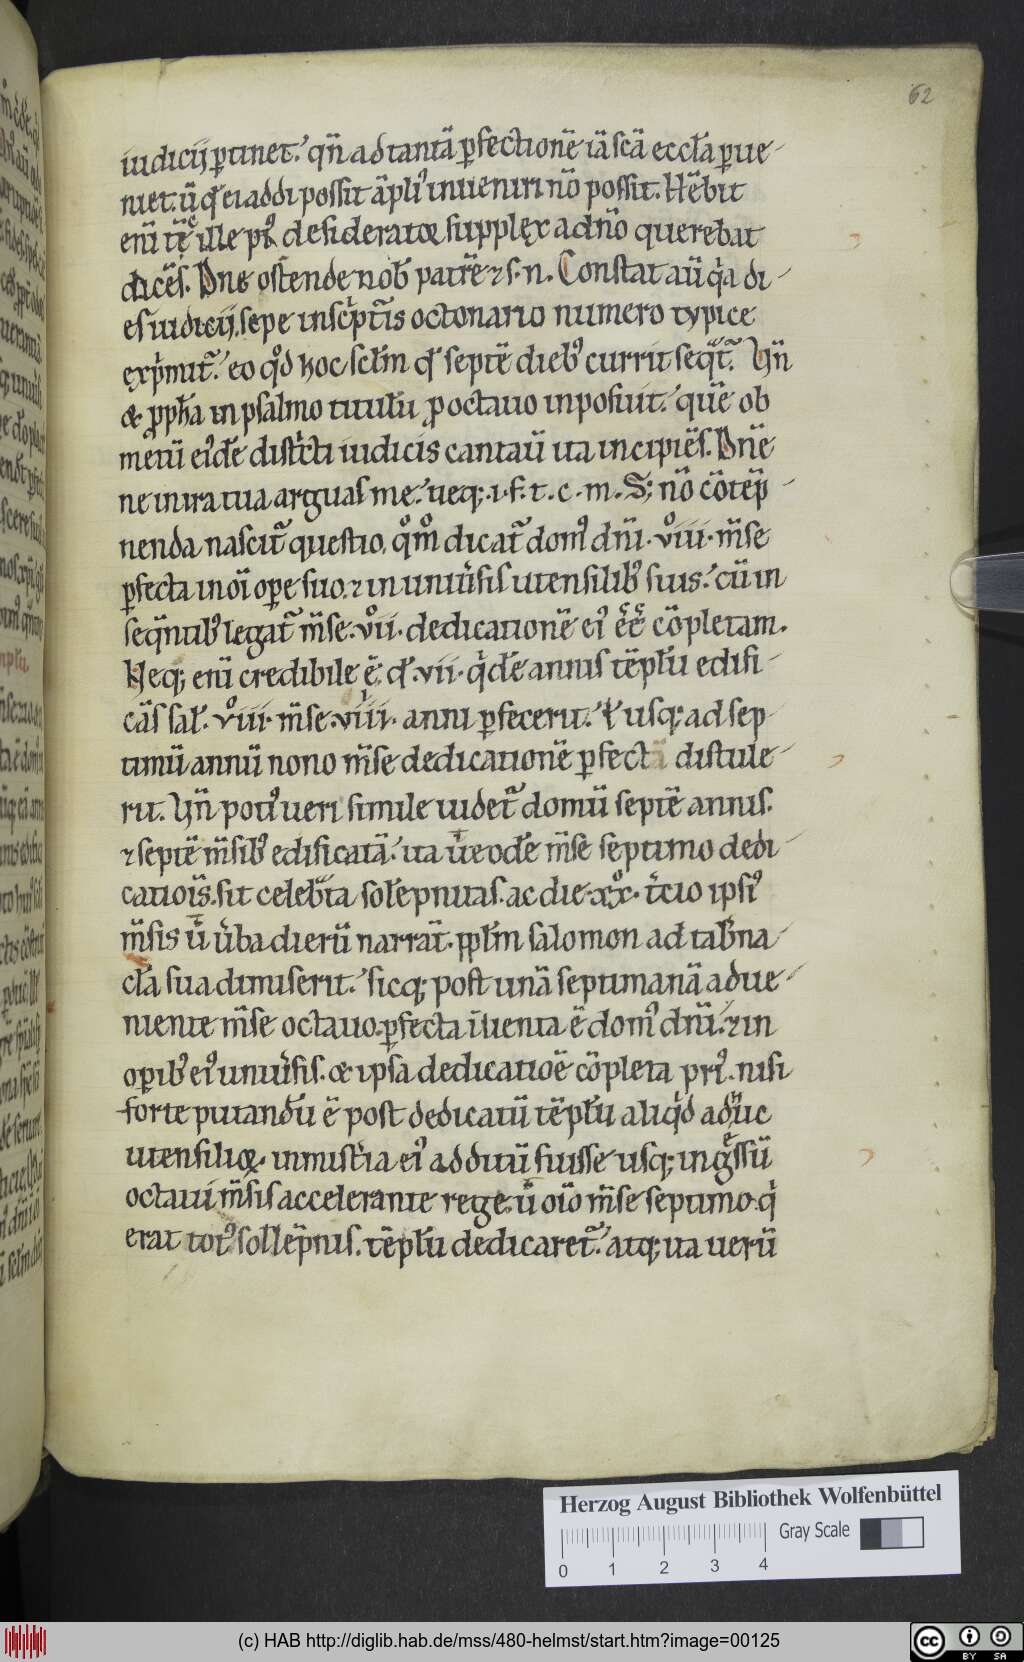 62
iudicij ꝑtinet. qn̄ ad tantā ꝑfectionē iā scā eccła ꝑue-
niet. ū qđ ei addi possit āpliꝰ inueniri nō possit. Hēbit
enī tc̄ ille pt̓ desideratꝙ supplex a dn̄o querebat
dicēs. Dne ostende nob̄ patrē ⁊ s. n. Constat aū qa di-
es iudicij, sepe in scptīs octonario numero typice
exp̄mit̄. eo qd hoc sclm̄ q̄ septē diebꝰ currit seqt̄. Vn̄
& ꝓpħa in psalmo titulū ꝓ octauo inposuit. quē ob
metū eiꝰdē districti iudicis cantaū ita incipiēs. Dnē
ne in ira tua arguas me. neq; .i. f. t. c. m. S; nō cōtēp̄-
nenda nascit̄ questio, qm̊ dicat̄ domꝰ dn̄i .viii. m̄se
ꝑfecta in oī oꝑe suo, ⁊ in uniūsis utensilibꝰ suis. cū in
seqn̄tibꝰ legat̄ m̄se .vii. dedicationē eiꝰ ēē cōpletam.
Neq; enī credibile ē, qđ .vii. qdē annis tēplū edifi-
cās sal̄. viii. m̄se .viii. anni ꝑfecerit. ł usq; ad sep-
timū annū nono m̄se dedicationē ꝑfectā distule-
rit. Vn̄ potiꝰ ueri simile uidet̄ domū septē annis.
⁊ septē m̄sibꝰ edificatā. ita ūe odē m̄se septimo dedi-
catiois̄. sit celebīta solēpnitas. ac die .xx. tcio ipsiꝰ
m̄sis ū ūba dierū narrāt. pplm̄ salomon ad tab̄na-
cła sua dimiserit. sicq; post unā septimanā adue-
niente m̄se octauo. ꝑfecta īuenta ē domꝰ dn̄i. ⁊ in
oꝑibꝰ eiꝰ uniūsis. & ipsa dedicatioē cōpleta pri̓. nisi
forte putandū ē post dedicatū tēplū aliqđ adhuc
utensiliꝙ. in mistīa eiꝰ additū fuisse usq; ingssū
octaui m̄sis accelerante rege, ū oīo m̄se septimo. q̇
erat totꝰ sollēpnis. tēplū dedicaret̄. atq; ita uerū
Herzog August Bibliothek Wolfenbüttel
Gray Scale
0 1 2 3 4
(c) HAB http://diglib.hab.de/mss/480-helmst/start.htm?image=00125
cc BY SA